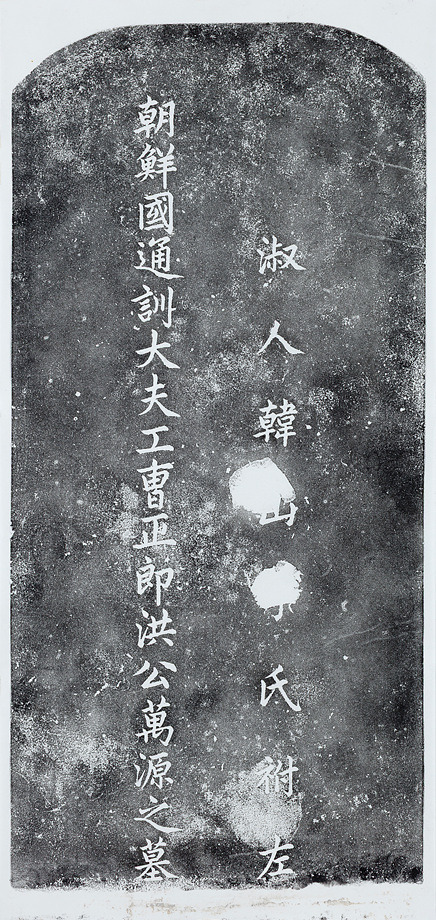 淑人韓山李氏祔左
朝鮮國通訓大夫工曹正郎洪公萬源之墓